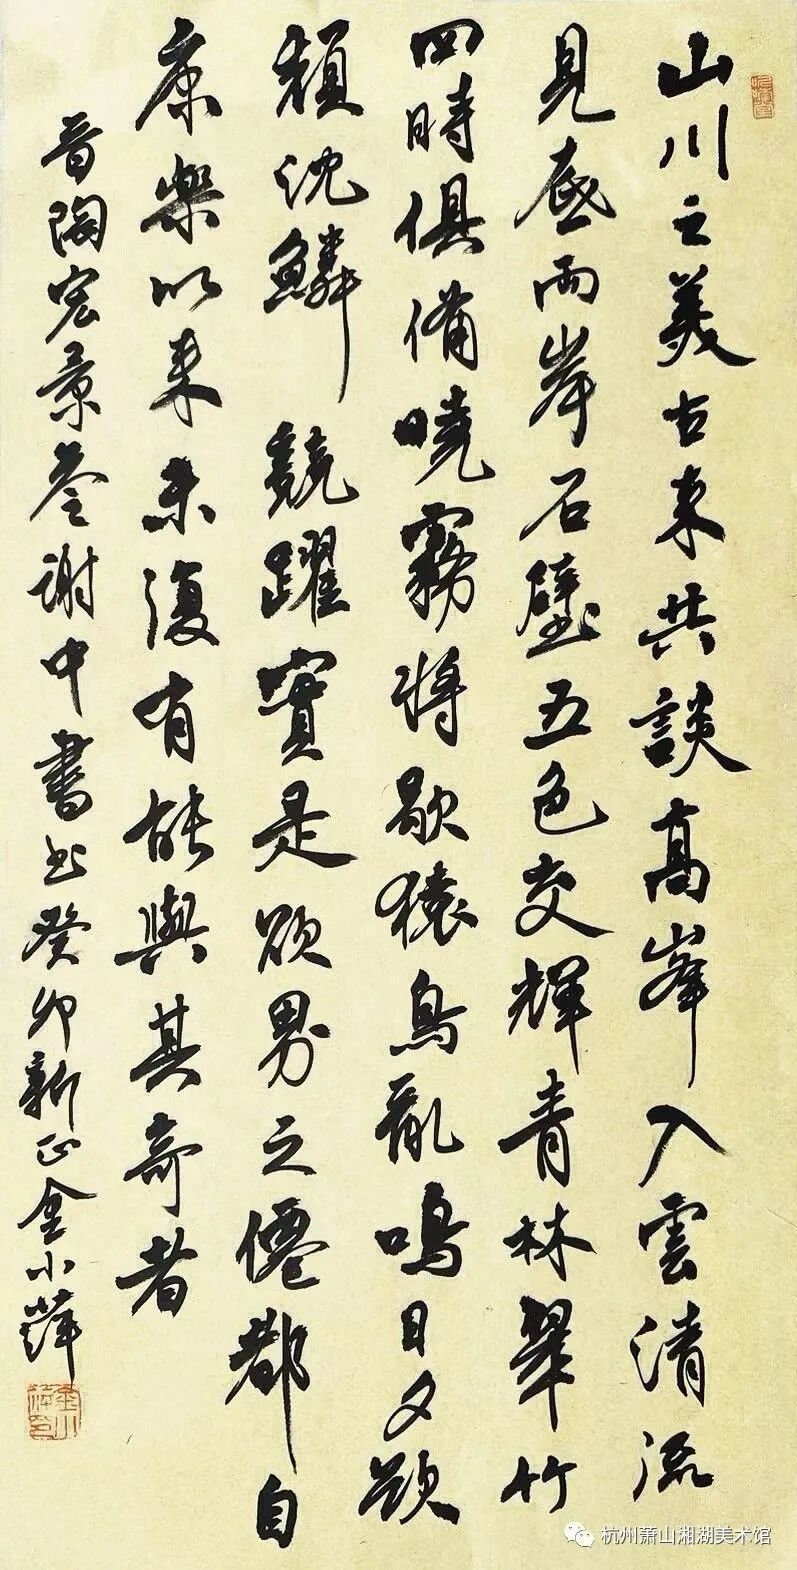 山川之美古来共談高峯入雲清流
見底兩岸石壁五色交輝青林翠竹
四時俱備曉霧將歇猿鳥亂鳴日夕欲
頹沈鱗競躍實是欲界之僊都自
康樂以来未復有能與其奇者
晉陶宏景答謝中書書癸卯新正金小
杭州萧山湘湖美术馆